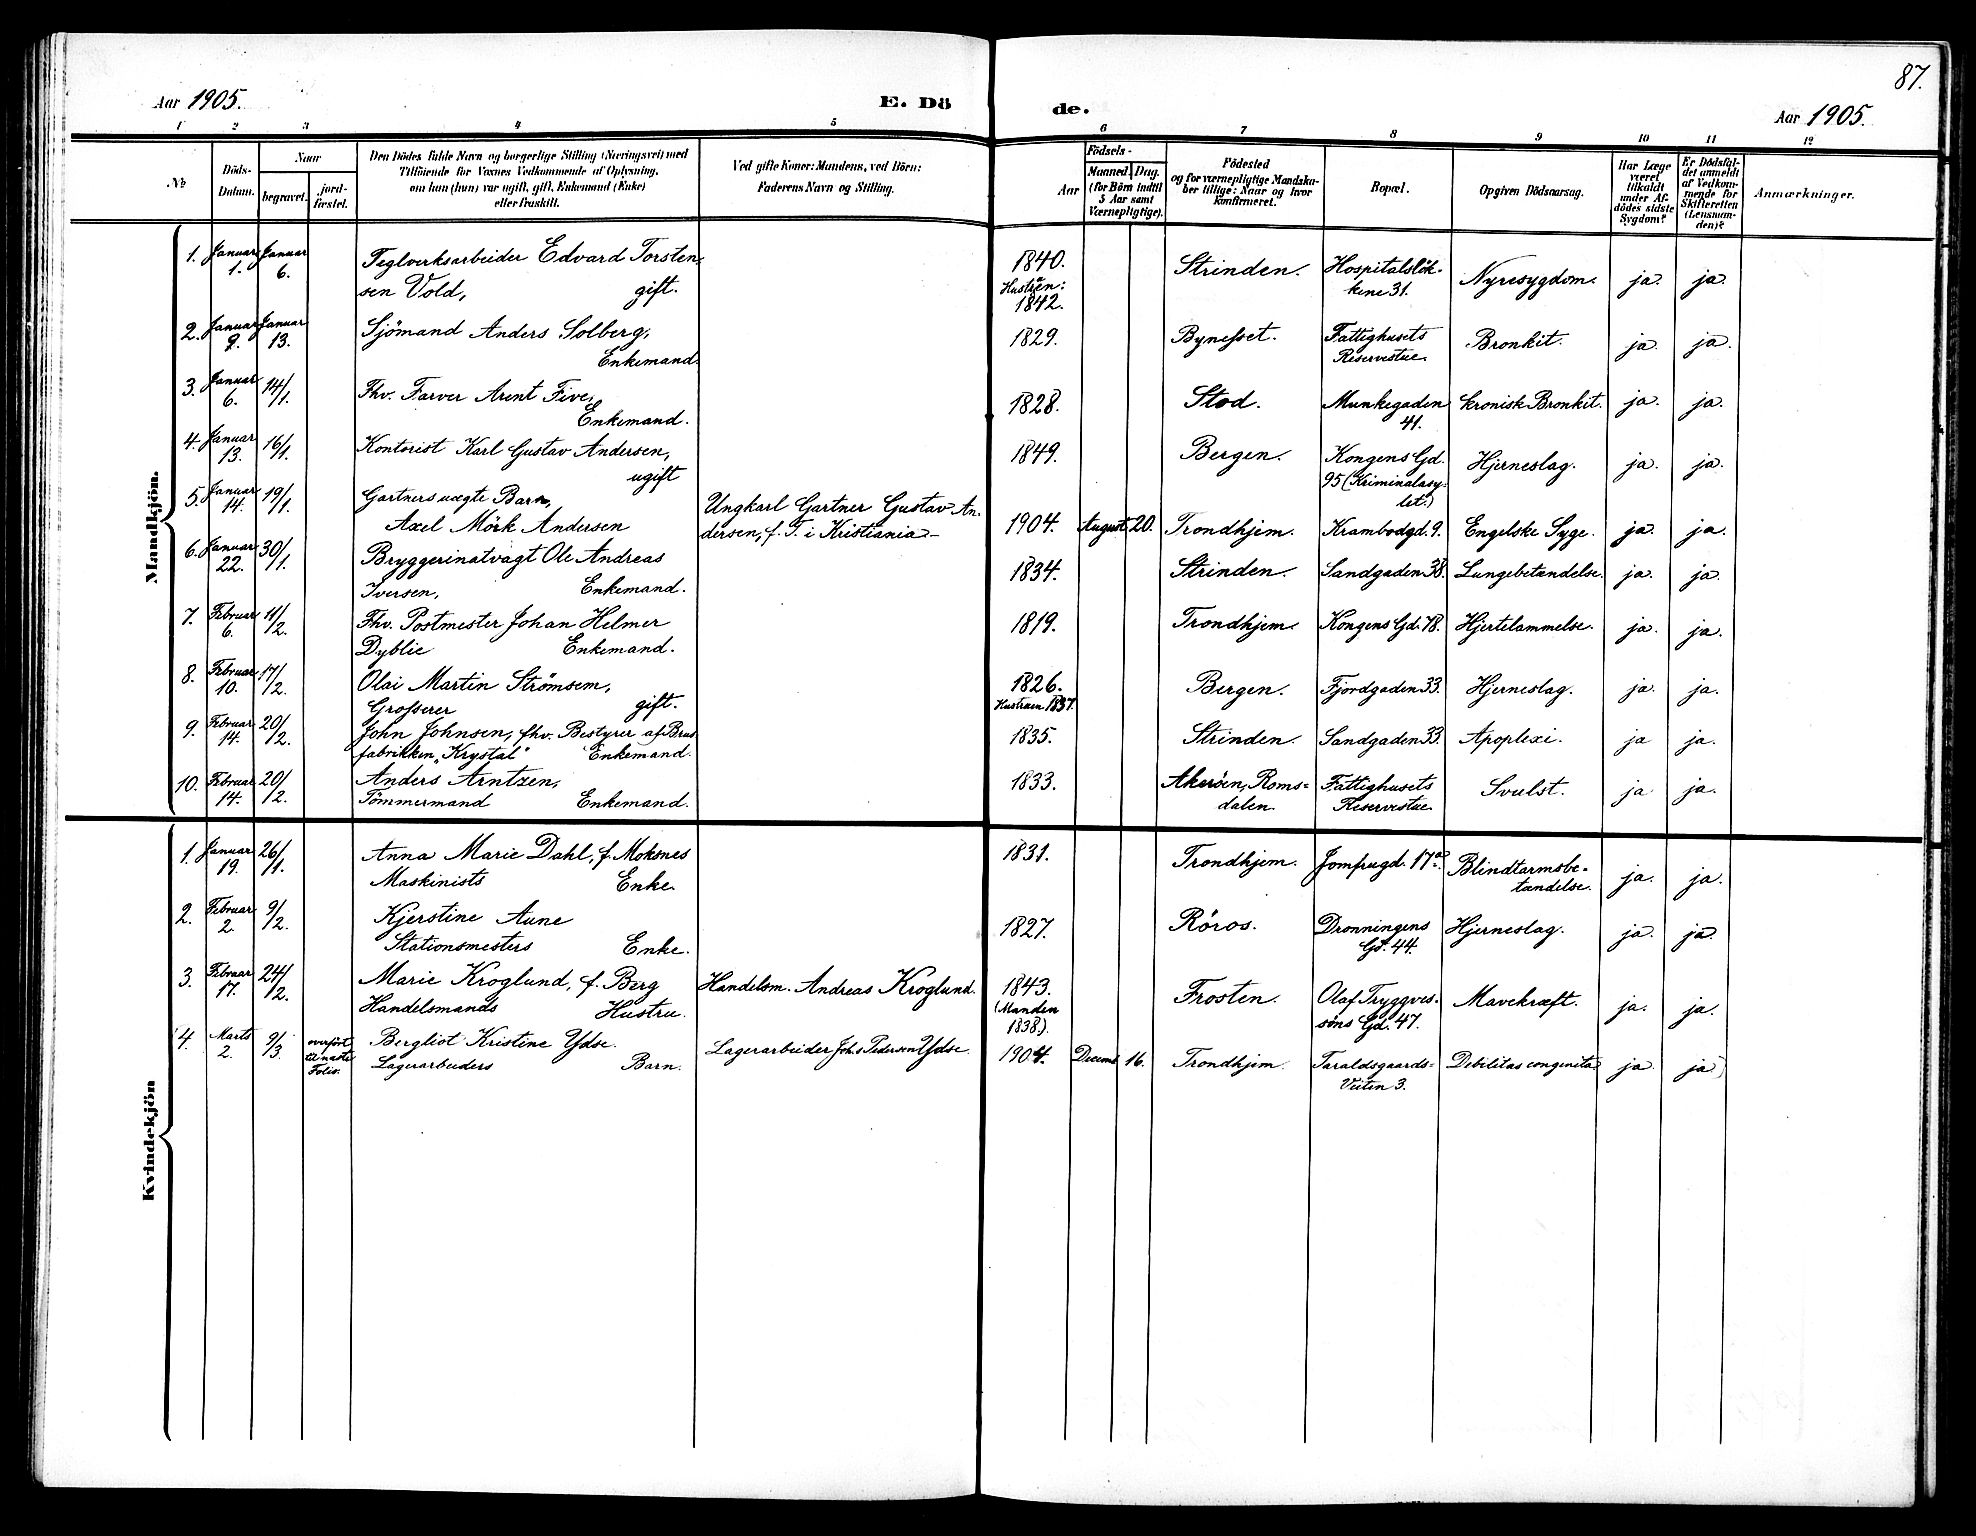 87.
Aar 1905. E. Dö de. Aar 1905.
1 2 3 4 5 6 7 8 9 10 11 12
No
Döds-Datum.
Naar
begravet.
jord-fæstet.
Den Dödes fulde Navn og borgerlige Stilling (Næringsvei) med
Tilföiende for Voxnes Vedkommende af Oplysning,
om han (hun) var ugift, gift, Enkemand (Enke)
eller fraskilt.
Ved gifte Koner: Mandens, ved Börn:
Faderens Navn og Stilling.
Födsels-
Aar
Maaned. Dag.
(for Börn indtil
5 Aar samt
Værnepligtige).
Födested
og for værnepligtige Mandska-
ber tillige: Naar og hvor
konfirmeret.
Bopæl.
Opgiven Dödsaarsag.
Har Læge
været
tilkaldt
under Af-
dödes sidste
Sygdom?
Er Dödsfal-
det anmeldt
af Vedkom-
mende for
Skifteretten
(Lensman-
den)?
Anmærkninger.
Mandkjön.
1. Januar 1. Januar 6. Teglverksarbeider Edvard Torsten-
sen Vold, gift. 1840. Hustruen: 1842. Strinden. Hospitalslök-
kene 31. Nyresygdom. ja. ja.
2. Januar 9. Januar 13. Sjömand Anders Solberg,
Enkemand. 1829. Bynesset. Fattighusets
Reservestue. Bronkit. ja. ja.
3. Januar 6. 14/1. Fhv. Farver Arent Five,
Enkemand. 1828. Stod. Munkegaden
41. kronisk Bronkit. ja. ja.
4. Januar 13. 16/1. Kontorist Karl Gustav Andersen,
ugift 1849. Bergen. Kongens Gd.
95 (Kriminalasy-
let.) Hjerneslag. ja. ja.
5. Januar 14. 19/1. Gartners uægte Barn,
Axel Mörk Andersen Ungkarl Gartner Gustav An-
dersen, f. T. i Kristiania 1904. August 20. Trondhjem. Krambodgd. 9. Engelske Syge. ja. ja.
6. Januar 22. 30/1. Bryggerinatvagt Ole Andreas
Iversen, Enkemand. 1834. Strinden. Sandgaden 38. Lungebetændelse. ja. ja
7. Februar 6. 11/2. Fhv. Postmester Johan Helmer
Dyblie Enkemand. 1819. Trondhjem. Kongens Gd. 78. Hjertelammelse. ja. ja.
8. Februar 10. 17/2. Olai Martin Strömsem,
Grosserer gift. 1826. Hustruen 1837. Bergen. Fjordgaden 33. Hjerneslag. ja. ja.
9. Februar 14. 20/2. John Johnsen, fhv. Bestyrer af Brus
fabrikken „Krystal" Enkemand. 1835. Strinden. Sandgaden 33. Apoplexi. ja ja.
10. Februar 14. 20/2. Anders Arntzen,
Tömmermand Enkemand. 1833. Akeröen, Roms-
dalen. Fattighusets
Reservestue. Svulst. ja ja.
Kvindekjön
1. Januar 19. 26/1. Anna Marie Dahl, f. Moksnes
Maskinists Enke. 1831. Trondhjem. Jomfrugd. 17a. Blindtarmsbe-
tændelse. ja. ja.
2. Februar 2. 9/2. Kjerstine Aune
Stationsmesters Enke. 1827. Röros. Dronningens
Gd. 44. Hjerneslag. ja. ja.
3. Februar 17. 24/2. Marie Kroglund, f. Berg
Handelsmands Hustru. Handelsm. Andreas Kroglund. 1843. (Manden 1838). Frosten. Olaf Tryggves-
söns Gd. 47. Mavekræft. ja. ja.
4. Marts 2. 9/3. overfört
til næste
Folio. Bergliot Kristine Ydse.
Lagerarbeiders Barn. Lagerarbeider Johs Pedersen Ydse. 1904. Decemb 16. Trondhjem. Taraldsgaards-
Veiten 3. Debilitas congenita ja. ja)